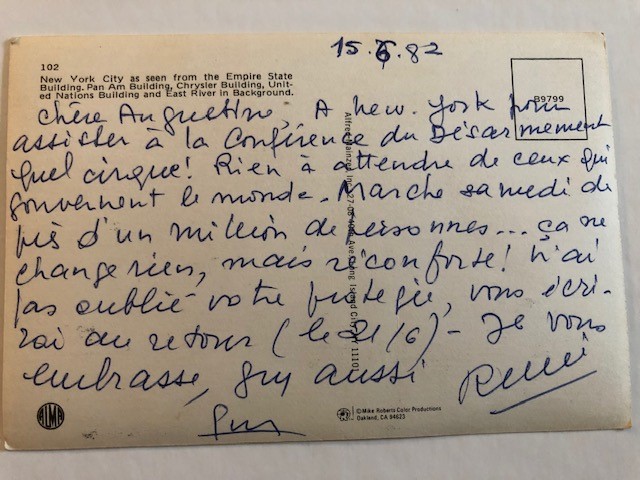 15.6.82
102
New York City as seen from the Empire State
Building. Pan Am Building, Chrysler Building, Unit-
ed Nations Building and East River in Background.
B9799
Chère Augustine, A New-York pour
assister à la Conférence du Désarmement
quel cirque! Rien à attendre de ceux qui
gouvernent le monde. Marche samedi de
près d'un million de personnes... ça ne
change rien, mais réconforte! N'ai
pas oublié votre protégée, vous écri-
rai au retour (le 21/6) - Je vous
embrasse, Guy aussi
Guy
ALMA
© Mike Roberts Color Productions
Oakland, CA 94623